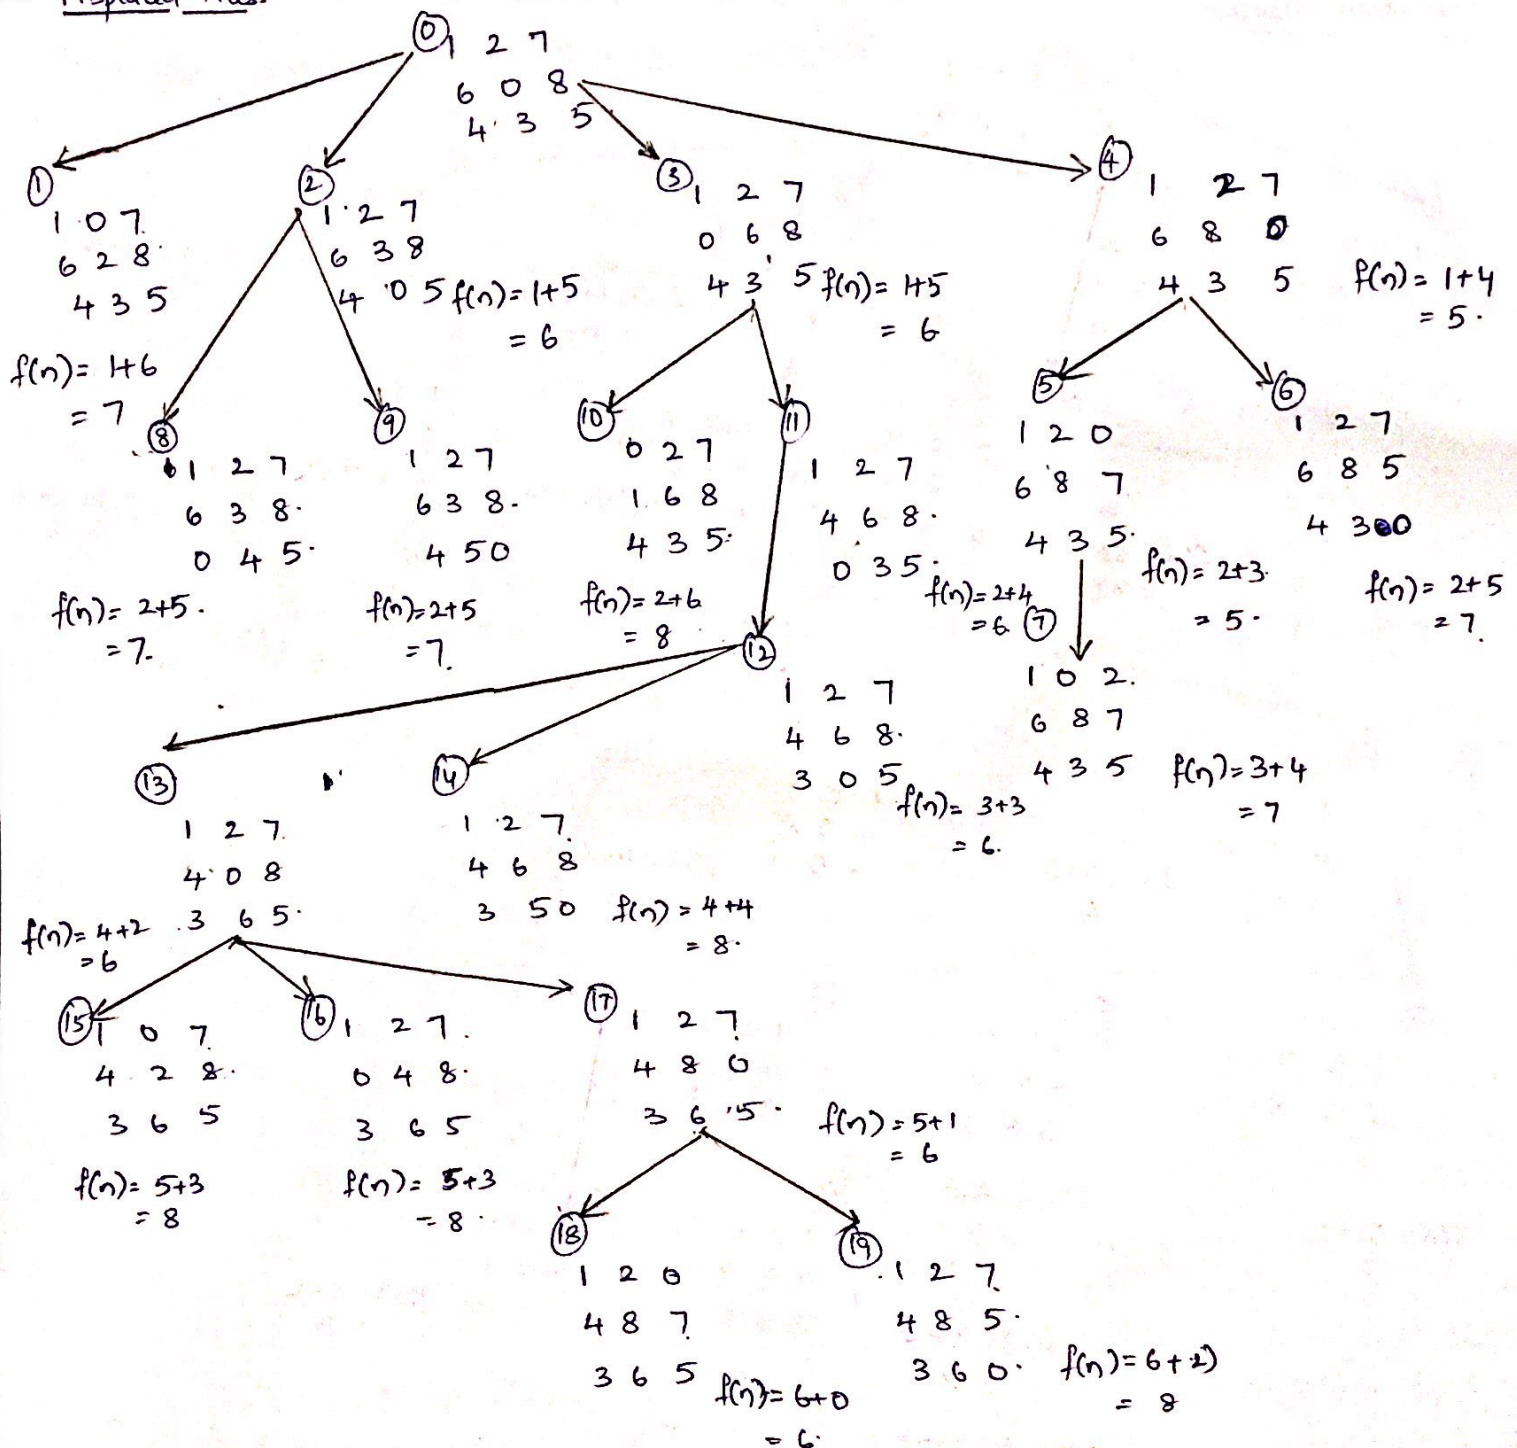 Misplaced Tiles.
0
1 2 7
6 0 8
4 3 5
1
1 0 7
6 2 8
4 3 5
f(n)= 1+6
= 7
2
1 2 7
6 3 8
4 0 5
f(n)= 1+5
= 6
3
1 2 7
0 6 8
4 3 5
f(n)= 1+5
= 6
4
1 2 7
6 8 0
4 3 5
f(n)= 1+4
= 5.
8
1 2 7
6 3 8.
0 4 5.
f(n)= 2+5.
= 7.
9
1 2 7
6 3 8.
4 5 0
f(n)=2+5
= 7.
10
0 2 7
1 6 8
4 3 5.
f(n)= 2+6
= 8
11
1 2 7
4 6 8.
0 3 5.
f(n)= 2+4
= 6
5
1 2 0
6 8 7
4 3 5.
f(n)= 2+3.
= 5.
6
1 2 7
6 8 5
4 3 0
f(n)= 2+5
= 7.
12
1 2 7
4 6 8.
3 0 5
f(n)= 3+3
= 6.
7
1 0 2.
6 8 7
4 3 5
f(n)=3+4
= 7
13
1 2 7.
4 0 8
3 6 5.
f(n)= 4+2
=6
14
1 2 7.
4 6 8
3 5 0
f(n) = 4+4
= 8.
15
1 0 7.
4 2 8.
3 6 5
f(n)= 5+3
= 8
16
1 2 7.
0 4 8.
3 6 5
f(n)= 5+3
= 8.
17
1 2 7.
4 8 0
3 6 5.
f(n) = 5+1
= 6
18
1 2 0
4 8 7.
3 6 5
f(n)= 6+0
= 6.
19
1 2 7.
4 8 5.
3 6 0.
f(n)= 6+2)
= 8